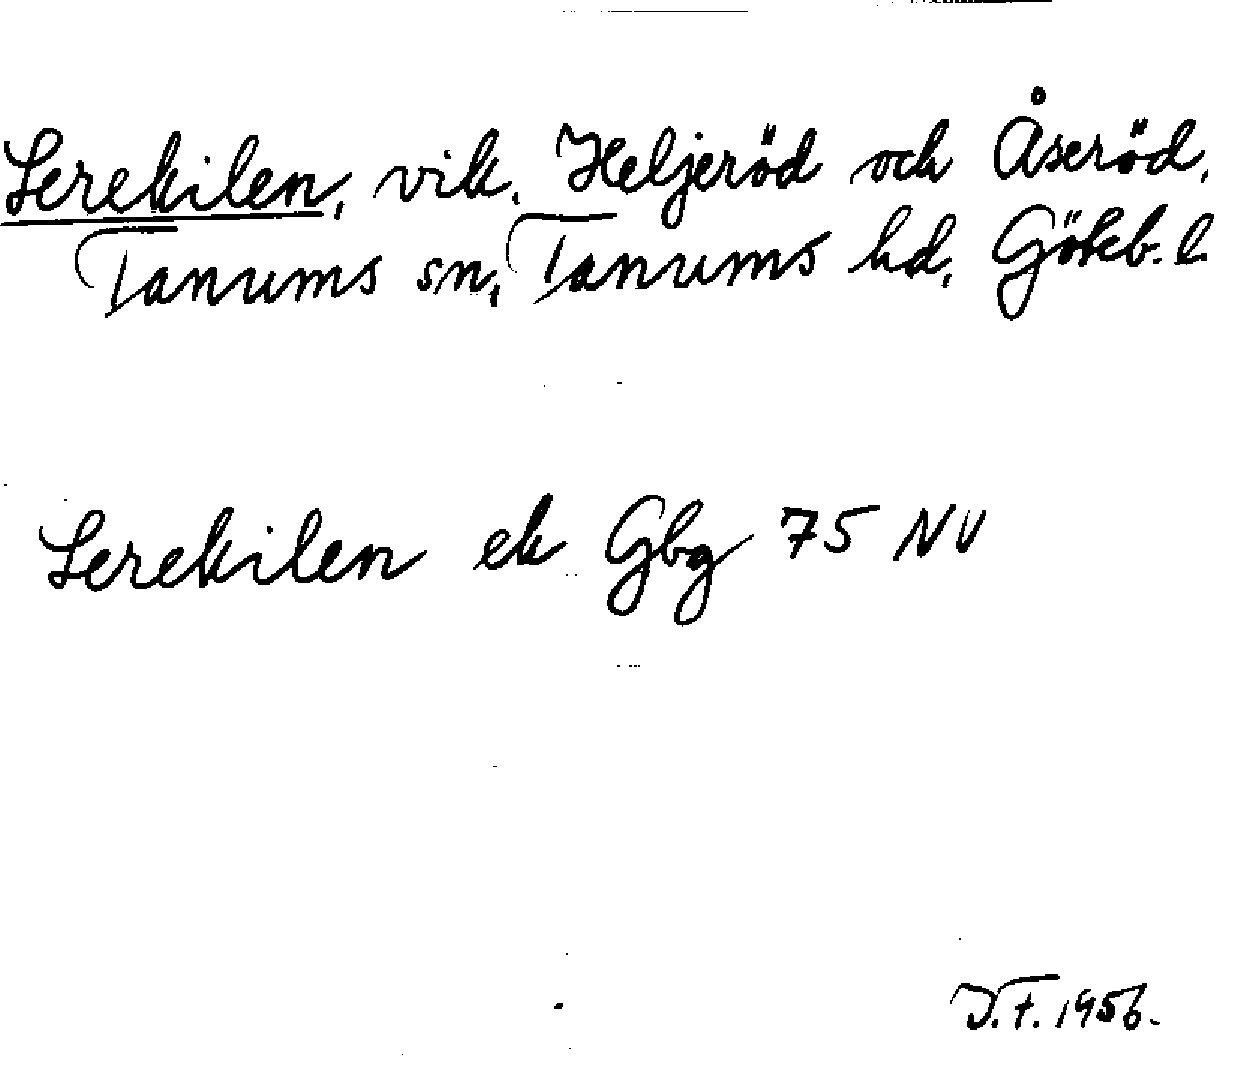 Serekilen, vik. Heljeröd och Åseröd,
Tanums sn, Tanums hd, Gökb. l.
Serekilen ek Gbg 75 NV
D.F. 1956.